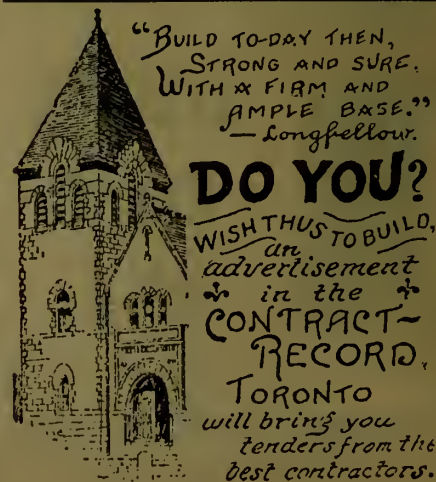 “BUILD TO-DAY THEN,
STRONG AND SURE,
WITH A FIRM AND
AMPLE BASE.”
— Longfellow.
DO YOU?
WISH THUS TO BUILD,
an
advertisement
in the
CONTRACT-
RECORD,
TORONTO
will bring you
tenders from the
best contractors.